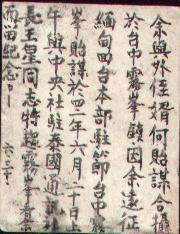 余與外侄婿何貽謀合攝
於台中霧峯鎮因余遠征
緬甸回台本部駐節台中霧
峯貽謀於四二年六月二十日上
午與中央社駐泰國通訊社
長王星同志特趨霧峯
而留紀念
六.二十.